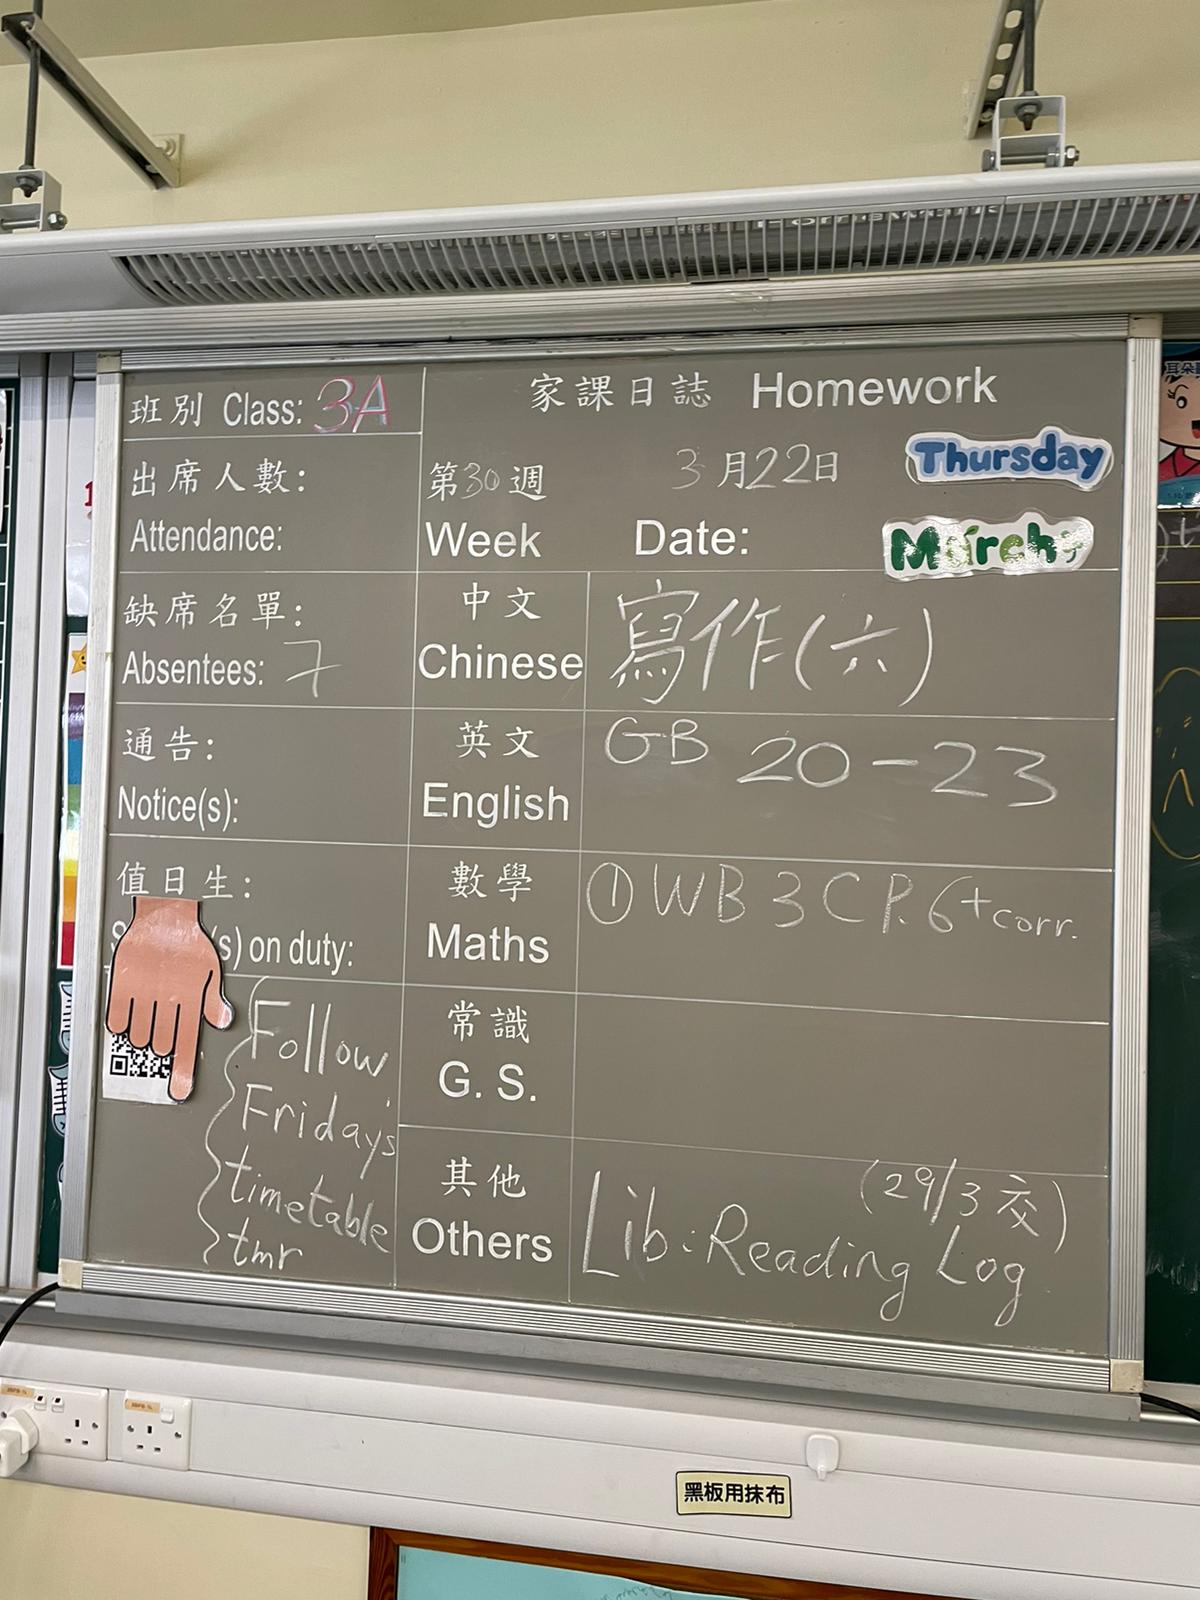 班別 Class: 3A
家課日誌 Homework
出席人數:
Attendance:
第30週 3月22日 Thursday
Week Date: March
缺席名單:
Absentees: 7
中文
Chinese
寫作(六)
通告:
Notice(s):
英文
English
GB 20-23
值日生:
(s) on duty:
數學
Maths
① WB 3C P.6+corr.
Follow
Friday's
timetable
tmr
常識
G. S.
其他
Others
(29/3 交)
Lib: Reading Log
黑板用抹布